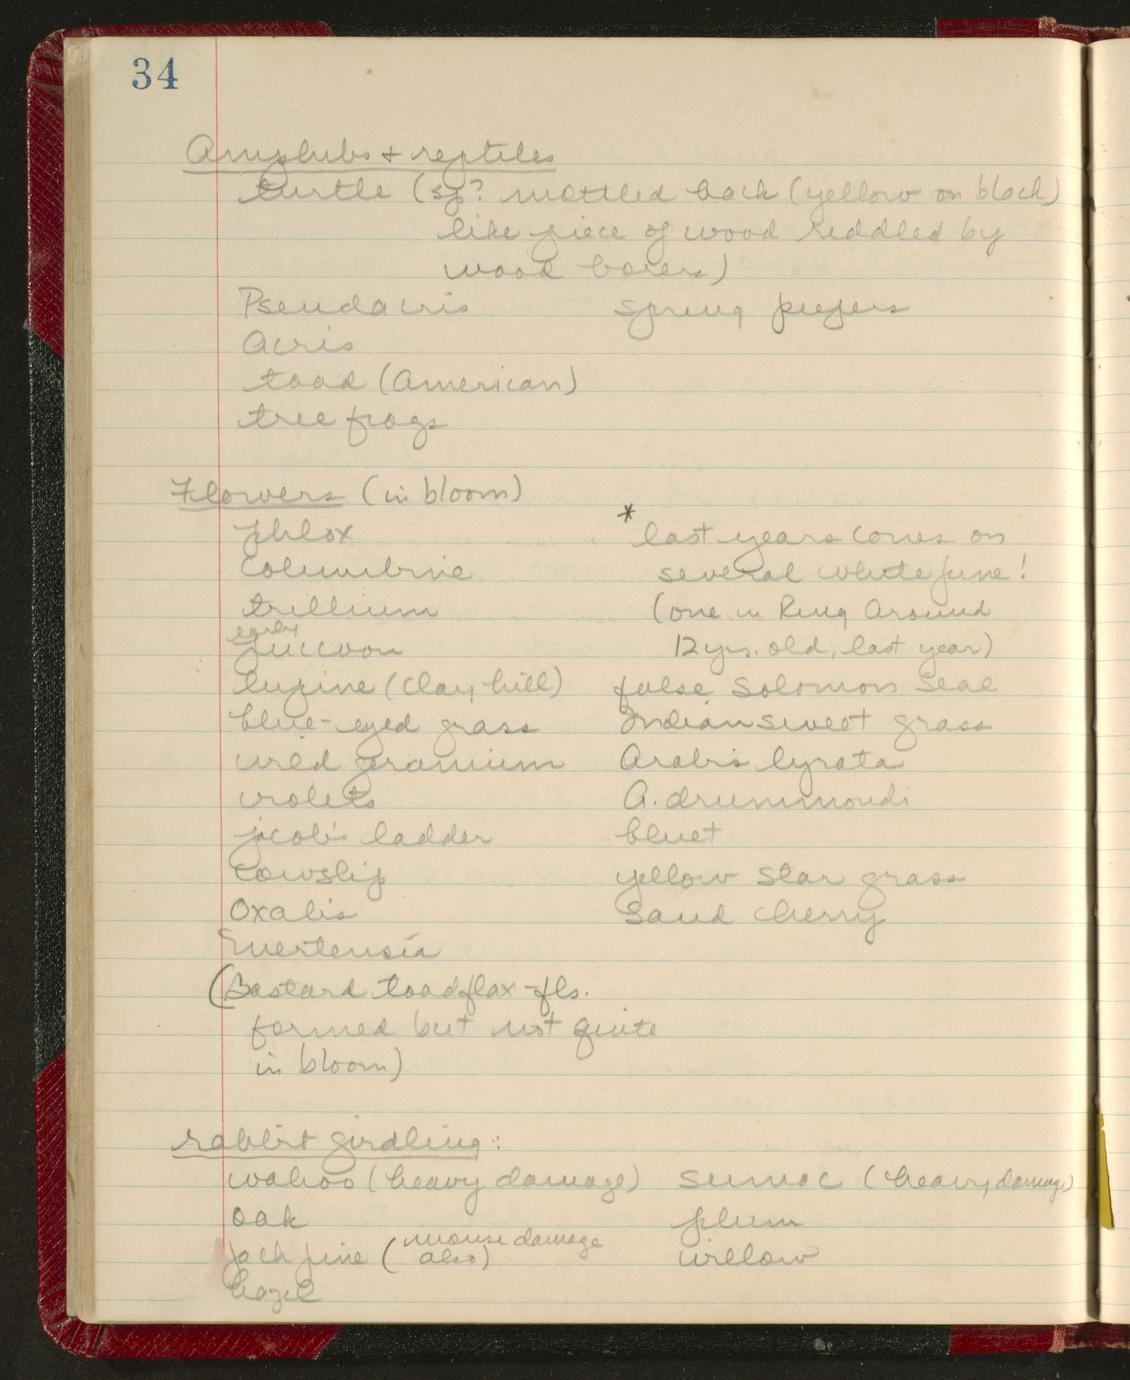 34
Amphibs & reptiles
turtle (sp? mottled back (yellow on black)
like piece of wood riddled by
wood borers)
Pseudacris spring peepers
Acris
toad (American)
tree frogs
Flowers (in bloom)
phlox
columbine
trillium
early
puccoon
lupine (clay hill)
blue-eyed grass
wild geranium
violets
jacob's ladder
cowslip
Oxalis
mertensia
(Bastard toadflax -fls.
formed but not quite
in bloom)
* last years cones on
several white pine!
(one in Ring Around
12 yrs. old, last year)
false Solomon Seal
Indian sweet grass
Arabis lyrata
A. drummondi
bluet
yellow star grass
Sand cherry
rabbit girdling:
wahoo (heavy damage) sumac (heavy damage)
oak plum
jack pine (mouse damage also) willow
hazel